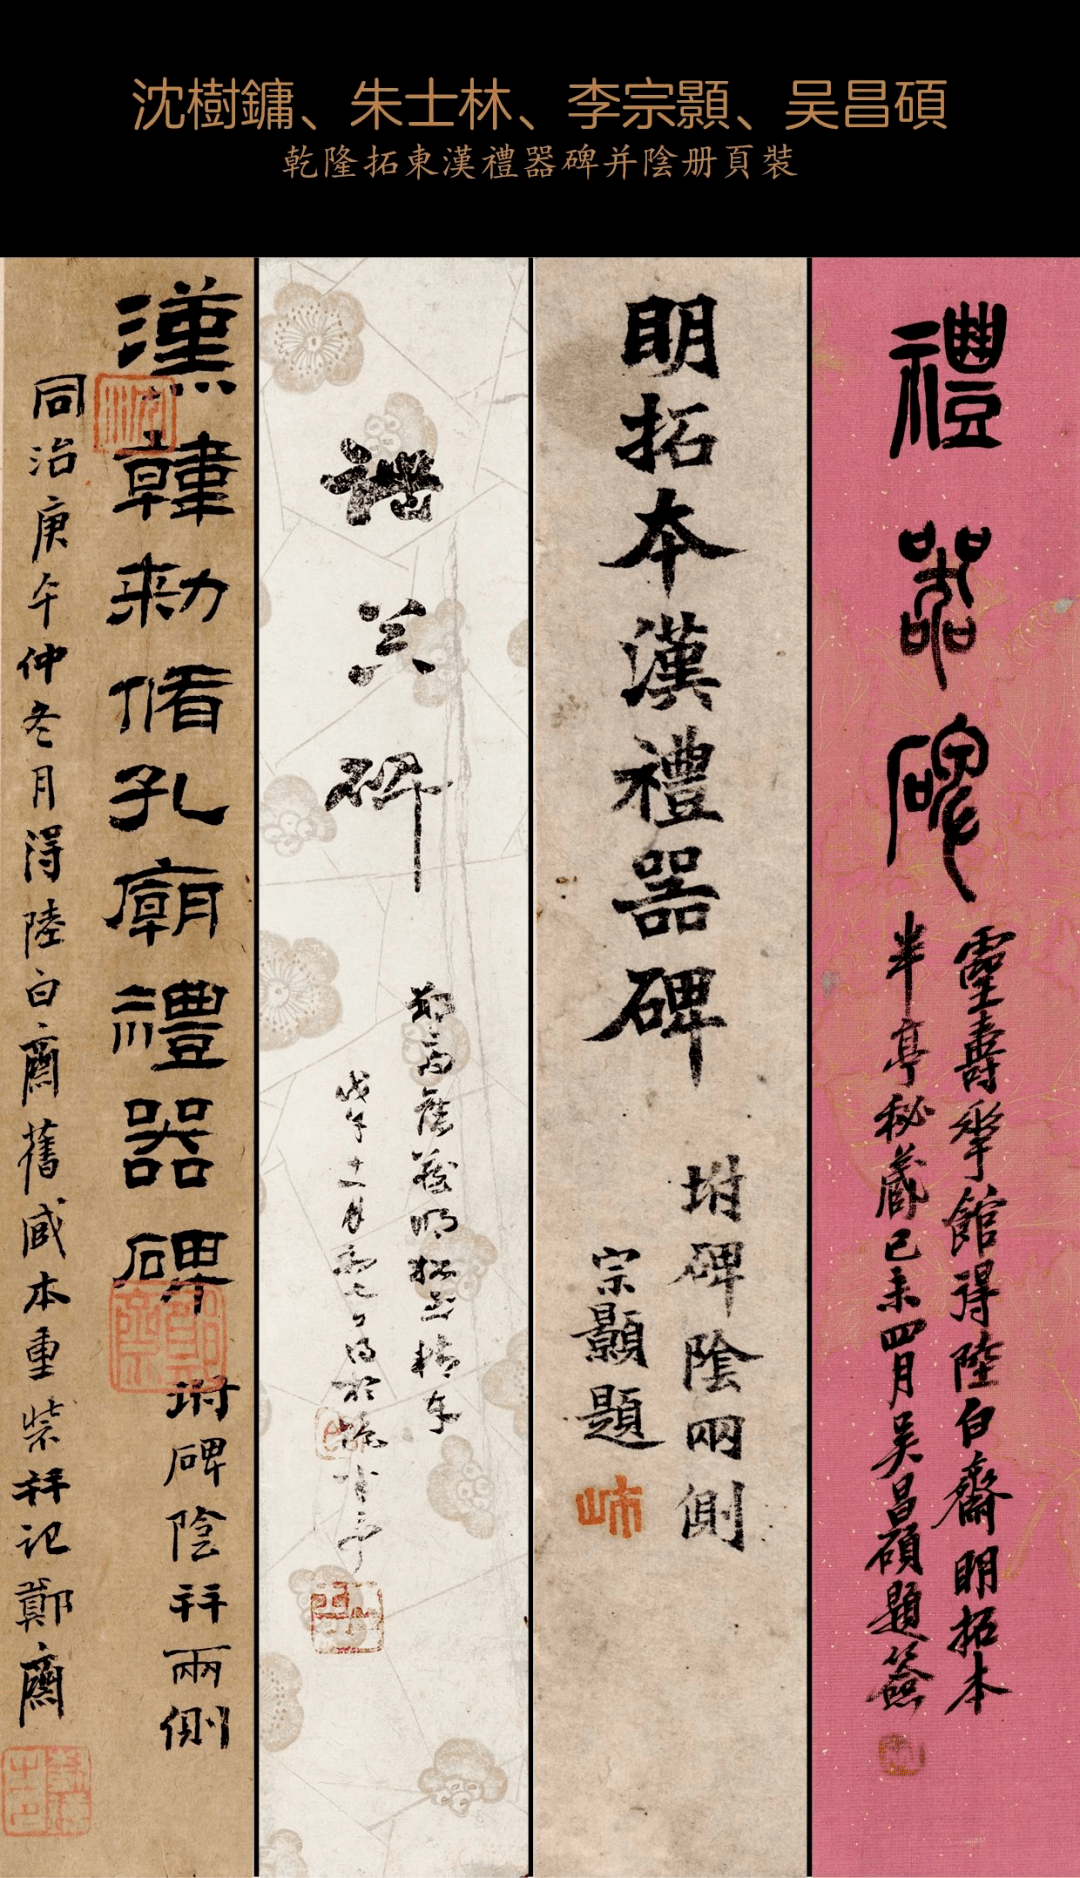 沈樹鏞、朱士林、李宗顥、吴昌碩
乾隆拓東漢禮器碑并陰册頁裝
禮器碑
靈壽華館得陸白齋明拓本
半亭秘藏己未四月吴昌碩題簽
明拓本漢禮器碑
坿碑陰兩側
宗顥題
碑
戊午十一月
漢韓勑脩孔廟禮器碑
坿碑陰并兩側
同治庚午仲冬月得陸白齋舊藏本重裝并記鄭齋